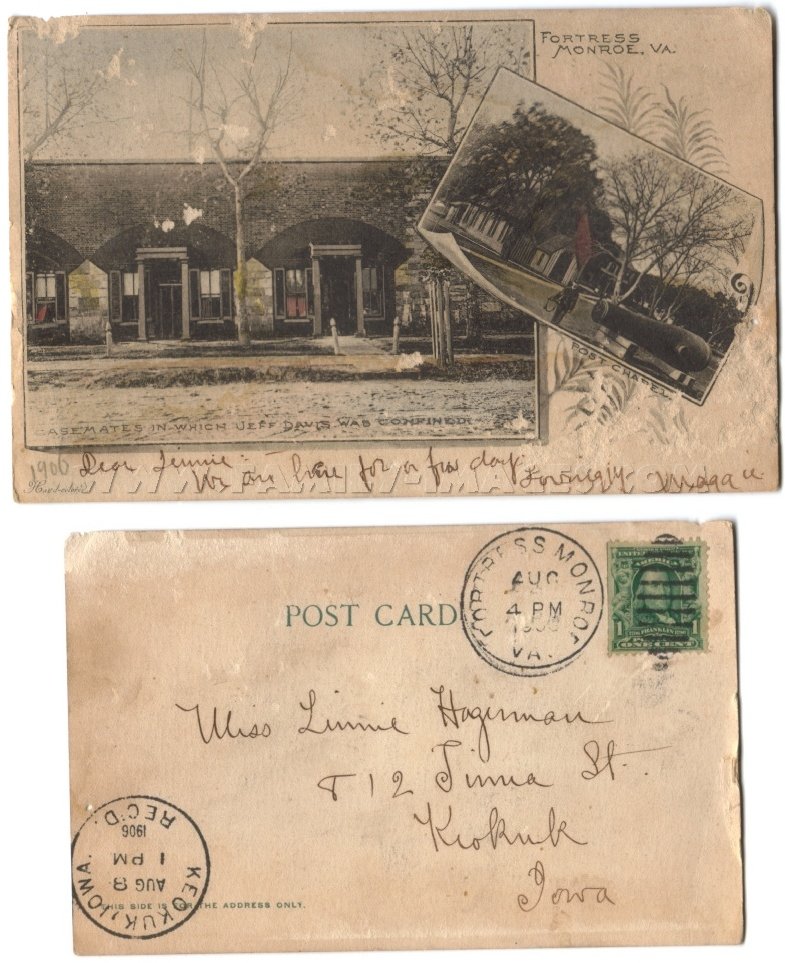 FORTRESS
MONROE, VA.
POST CHAPEL
CASEMATES IN WHICH JEFF DAVIS WAS CONFINED.
1906 Dear Linnie:
We are here for a few days.
Lovingly
Hand-colored
POST CARD
FORTRESS MONROE
AUG
4 PM
1906
VA.
UNITED STATES
AMERICA
1 FRANKLIN 1
ONE CENT
Miss Linnie Hagerman
812 Timea St.
Keokuk
Iowa
KEOKUK, IOWA.
AUG 8
1 PM
1906
REC'D.
THIS SIDE IS FOR THE ADDRESS ONLY.